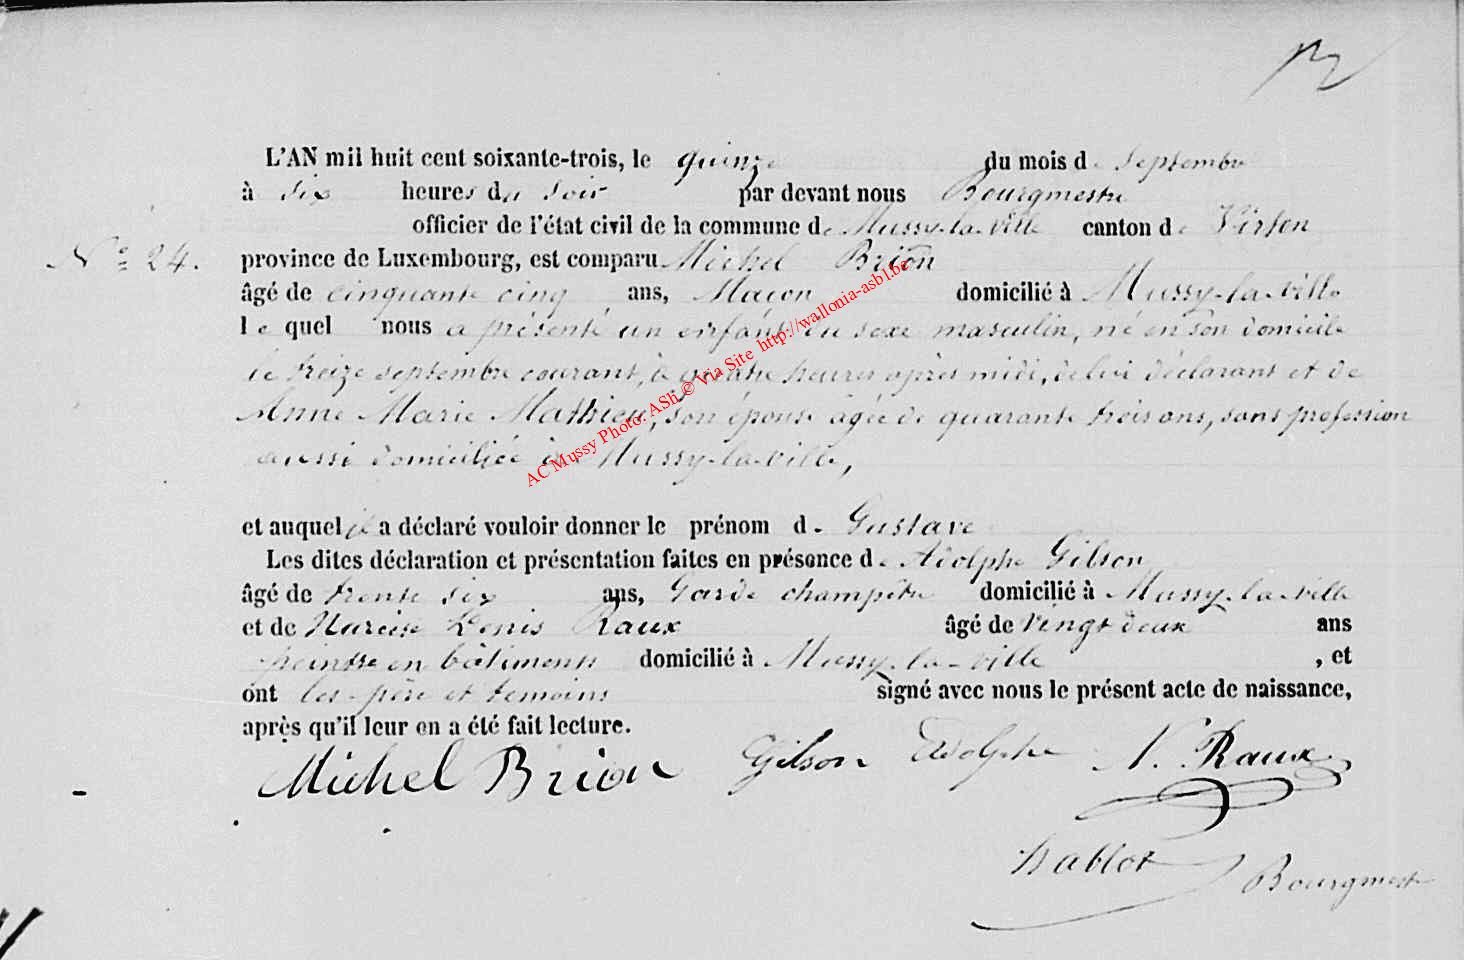 12
L'AN mil huit cent soixante-trois, le quinze du mois de septembre
à six heures du soir par devant nous Bourgmestre
officier de l'état civil de la commune de Mussy-la-ville canton de Virton
N° 24. province de Luxembourg, est comparu Michel Brion
âgé de cinquante cinq ans, Maçon domicilié à Mussy-la-ville
lequel nous a présenté un enfant du sexe masculin, né en son domicile
le treize septembre courant, à quatre heures après midi, de lui déclarant et de
Anne Marie Mathieu, son épouse âgée de quarante trois ans, sans profession
aussi domiciliée à Mussy-la-ville,
et auquel il a déclaré vouloir donner le prénom de Gustave
Les dites déclaration et présentation faites en présence de Adolphe Gilson
âgé de trente six ans, Garde champêtre domicilié à Mussy-la-ville
et de Narcisse Denis Raux âgé de vingt deux ans
peintre en bâtiments domicilié à Mussy-la-ville, et
ont les père et temoins signé avec nous le présent acte de naissance,
après qu'il leur en a été fait lecture.
Michel Brion Gilson Adolphe N. Raux
Hablot Bourgmestre
AC Mussy Photo: ASh © Via Site http://wallonia-asbl.be